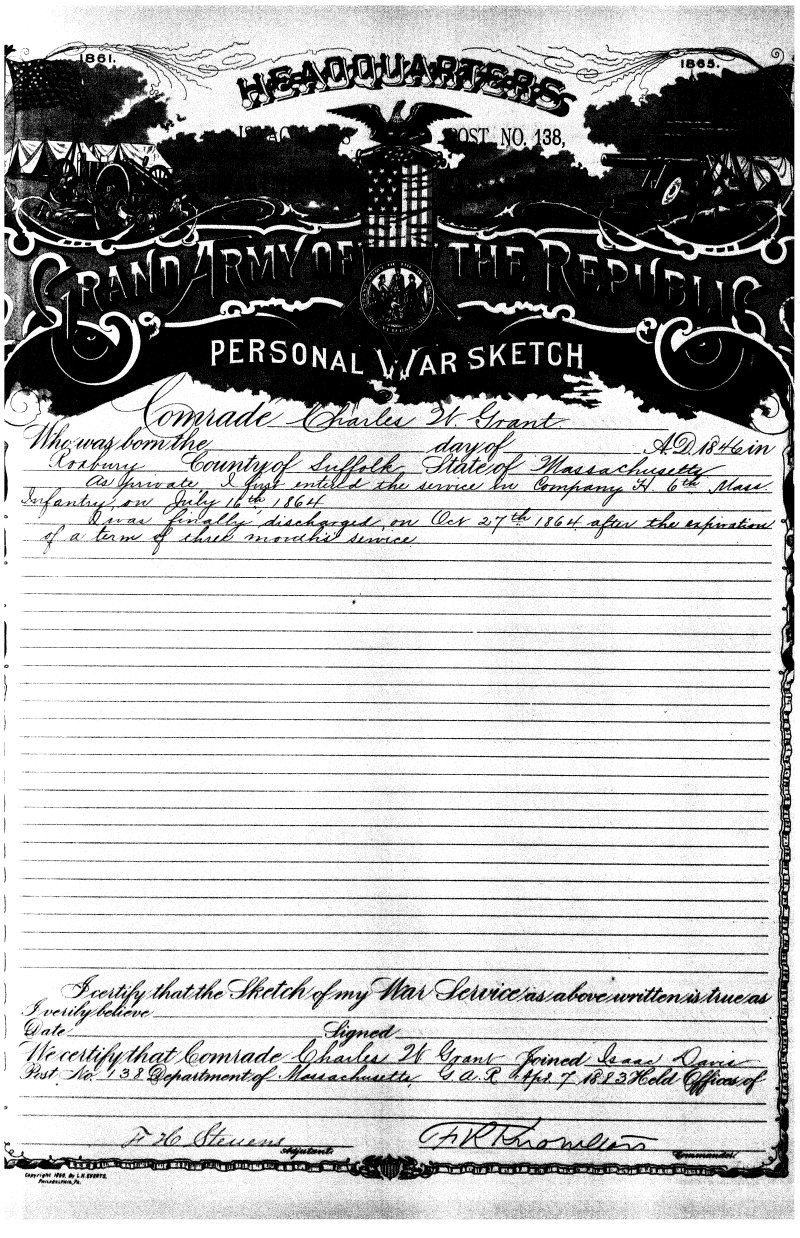 1861.
1865.
HEADQUARTERS
POST NO. 138,
GRAND ARMY OF THE REPUBLIC
PERSONAL WAR SKETCH
Comrade Charles W. Grant
Who was born the day of A.D. 1846 in
Roxbury County of Suffolk State of Massachusetts
As private I first entered the service in Company H. 6th Mass.
Infantry, on July 16th, 1864
I was finally discharged on Oct 27th 1864 after the expiration
of a term of three months service
I certify that the Sketch of my War Service as above written is true as
I verily believe
Date Signed
We certify that Comrade Charles W Grant Joined Isaac Davis
Post No. 138 Department of Massachusetts G.A.R. Apr. 7 1883 Held Offices of
F H Stevens
Adjutant.
Commander.
Copyright by L.H. EVERTS,
PHILADELPHIA, PA.